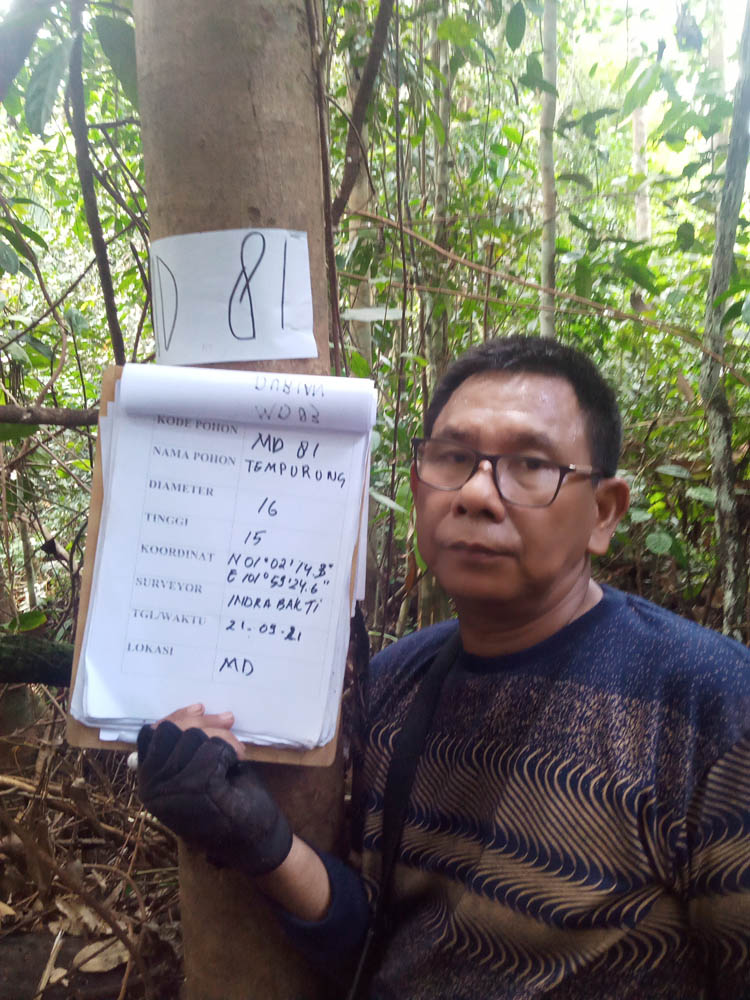 D 81
DURIAN
WD 03
KODE POHON MD 81
NAMA POHON TEMPURUNG
DIAMETER 16
TINGGI 15
KOORDINAT N 01°02'14.3"
E 101°53'24.6"
SURVEYOR INDRA BAKTI
TGL/WAKTU 21.09.21
LOKASI MD